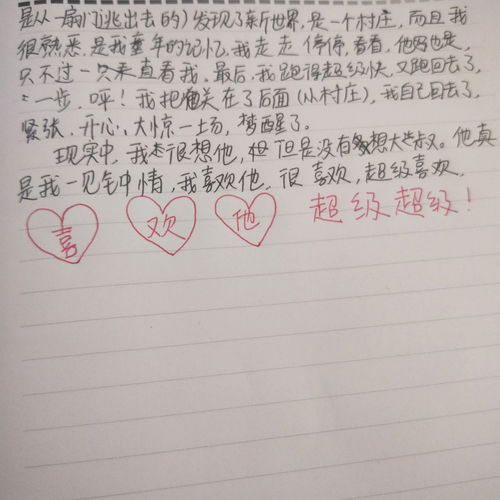 是从一扇门逃出去的)发现了新世界,是一个村庄,而且我
很熟悉,是我童年的记忆,我走走停停,看看,他吗也是,
只不过一只来直看我.最后,我跑得超级快,又跑回去了,
一步,呼!我把他关在了后面(从村庄),我自己回去了,
紧张,开心,大惊一场,梦醒了。
现实中,我很想他,但是没有多想大叔。他真
是我一见钟情,我喜欢他.很喜欢,超级喜欢.
喜 欢 他 超级超级!